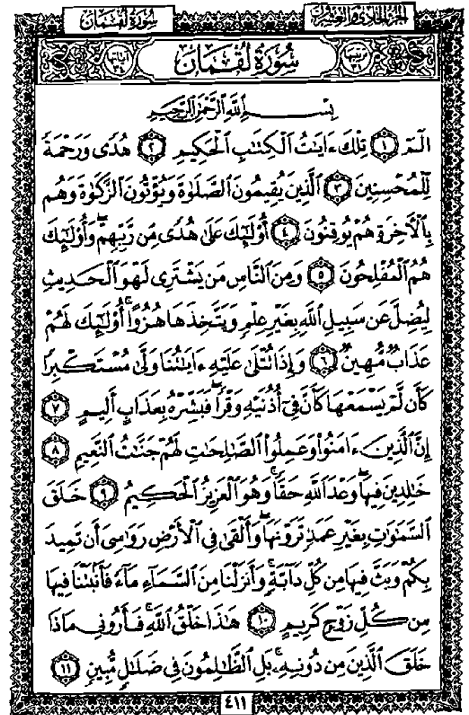 سُورَةُ لُقْمَان الجُزءُ الحَادِي وَالعِشْرُونَ
سُورَةُ لُقْمَانَ
بِسْمِ اللَّهِ الرَّحْمَٰنِ الرَّحِيمِ
الٓمٓ ١ تِلْكَ ءَايَٰتُ الْكِتَٰبِ الْحَكِيمِ ٢ هُدًى وَرَحْمَةً
لِّلْمُحْسِنِينَ ٣ الَّذِينَ يُقِيمُونَ الصَّلَوٰةَ وَيُؤْتُونَ الزَّكَوٰةَ وَهُم
بِالْءَاخِرَةِ هُمْ يُوقِنُونَ ٤ أُو۟لَٰٓئِكَ عَلَىٰ هُدًى مِّن رَّبِّهِمْ وَأُو۟لَٰٓئِكَ
هُمُ الْمُفْلِحُونَ ٥ وَمِنَ النَّاسِ مَن يَشْتَرِى لَهْوَ الْحَدِيثِ
لِيُضِلَّ عَن سَبِيلِ اللَّهِ بِغَيْرِ عِلْمٍ وَيَتَّخِذَهَا هُزُوًا أُو۟لَٰٓئِكَ لَهُمْ
عَذَابٌ مُّهِينٌ ٦ وَإِذَا تُتْلَىٰ عَلَيْهِ ءَايَٰتُنَا وَلَّىٰ مُسْتَكْبِرًا
كَأَن لَّمْ يَسْمَعْهَا كَأَنَّ فِىٓ أُذُنَيْهِ وَقْرًا فَبَشِّرْهُ بِعَذَابٍ أَلِيمٍ ٧
إِنَّ الَّذِينَ ءَامَنُوا۟ وَعَمِلُوا۟ الصَّٰلِحَٰتِ لَهُمْ جَنَّٰتُ النَّعِيمِ ٨
خَٰلِدِينَ فِيهَا وَعْدَ اللَّهِ حَقًّا وَهُوَ الْعَزِيزُ الْحَكِيمُ ٩ خَلَقَ
السَّمَٰوَٰتِ بِغَيْرِ عَمَدٍ تَرَوْنَهَا وَأَلْقَىٰ فِى الْأَرْضِ رَوَٰسِىَ أَن تَمِيدَ
بِكُمْ وَبَثَّ فِيهَا مِن كُلِّ دَآبَّةٍ وَأَنزَلْنَا مِنَ السَّمَآءِ مَآءً فَأَنۢبَتْنَا فِيهَا
مِن كُلِّ زَوْجٍ كَرِيمٍ ١٠ هَٰذَا خَلْقُ اللَّهِ فَأَرُونِى مَاذَا
خَلَقَ الَّذِينَ مِن دُونِهِۦ بَلِ الظَّٰلِمُونَ فِى ضَلَٰلٍ مُّبِينٍ ١١
٤١١